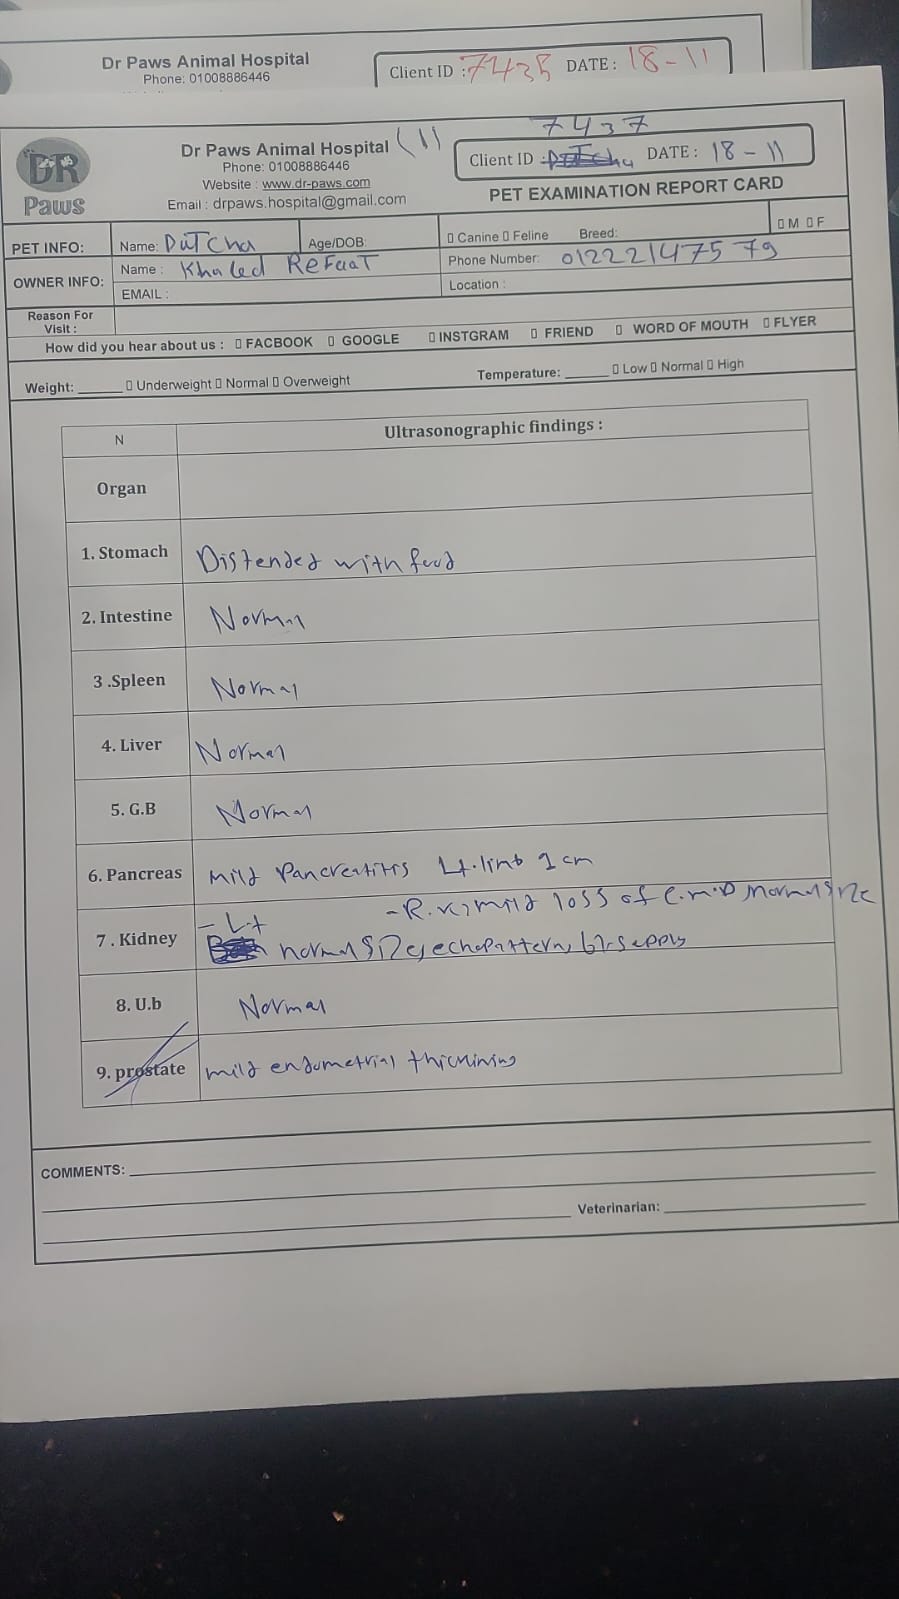 Dr Paws Animal Hospital
Phone: 01008886446
Client ID : 7435 DATE : 18-11
DR
Paws
Dr Paws Animal Hospital (1)
Phone: 01008886446
Website : www.dr-paws.com
Email : drpaws.hospital@gmail.com
7437
Client ID : DATE : 18-11
PET EXAMINATION REPORT CARD
PET INFO: Name: DuTcha Age/DOB: ▯ Canine ▯ Feline Breed: ▯ M ▯ F
OWNER INFO: Name : Khaled ReFaaT Phone Number:
EMAIL : Location :
Reason For Visit :
How did you hear about us : ▯ FACBOOK ▯ GOOGLE ▯ INSTGRAM ▯ FRIEND ▯ WORD OF MOUTH ▯ FLYER
Weight: ______ ▯ Underweight ▯ Normal ▯ Overweight Temperature: ______ ▯ Low ▯ Normal ▯ High
N Ultrasonographic findings :
Organ
1. Stomach Distended with food
2. Intestine Normal
3 .Spleen Normal
4. Liver Normal
5. G.B Normal
6. Pancreas Mild Pancreatitis Lt. limb 1 cm
- Lt - R. mild loss of C.M.D normal size
7 . Kidney normal size, echopattern, supply
8. U.b Normal
9. prostate mild endometrial thickining
COMMENTS:
Veterinarian: